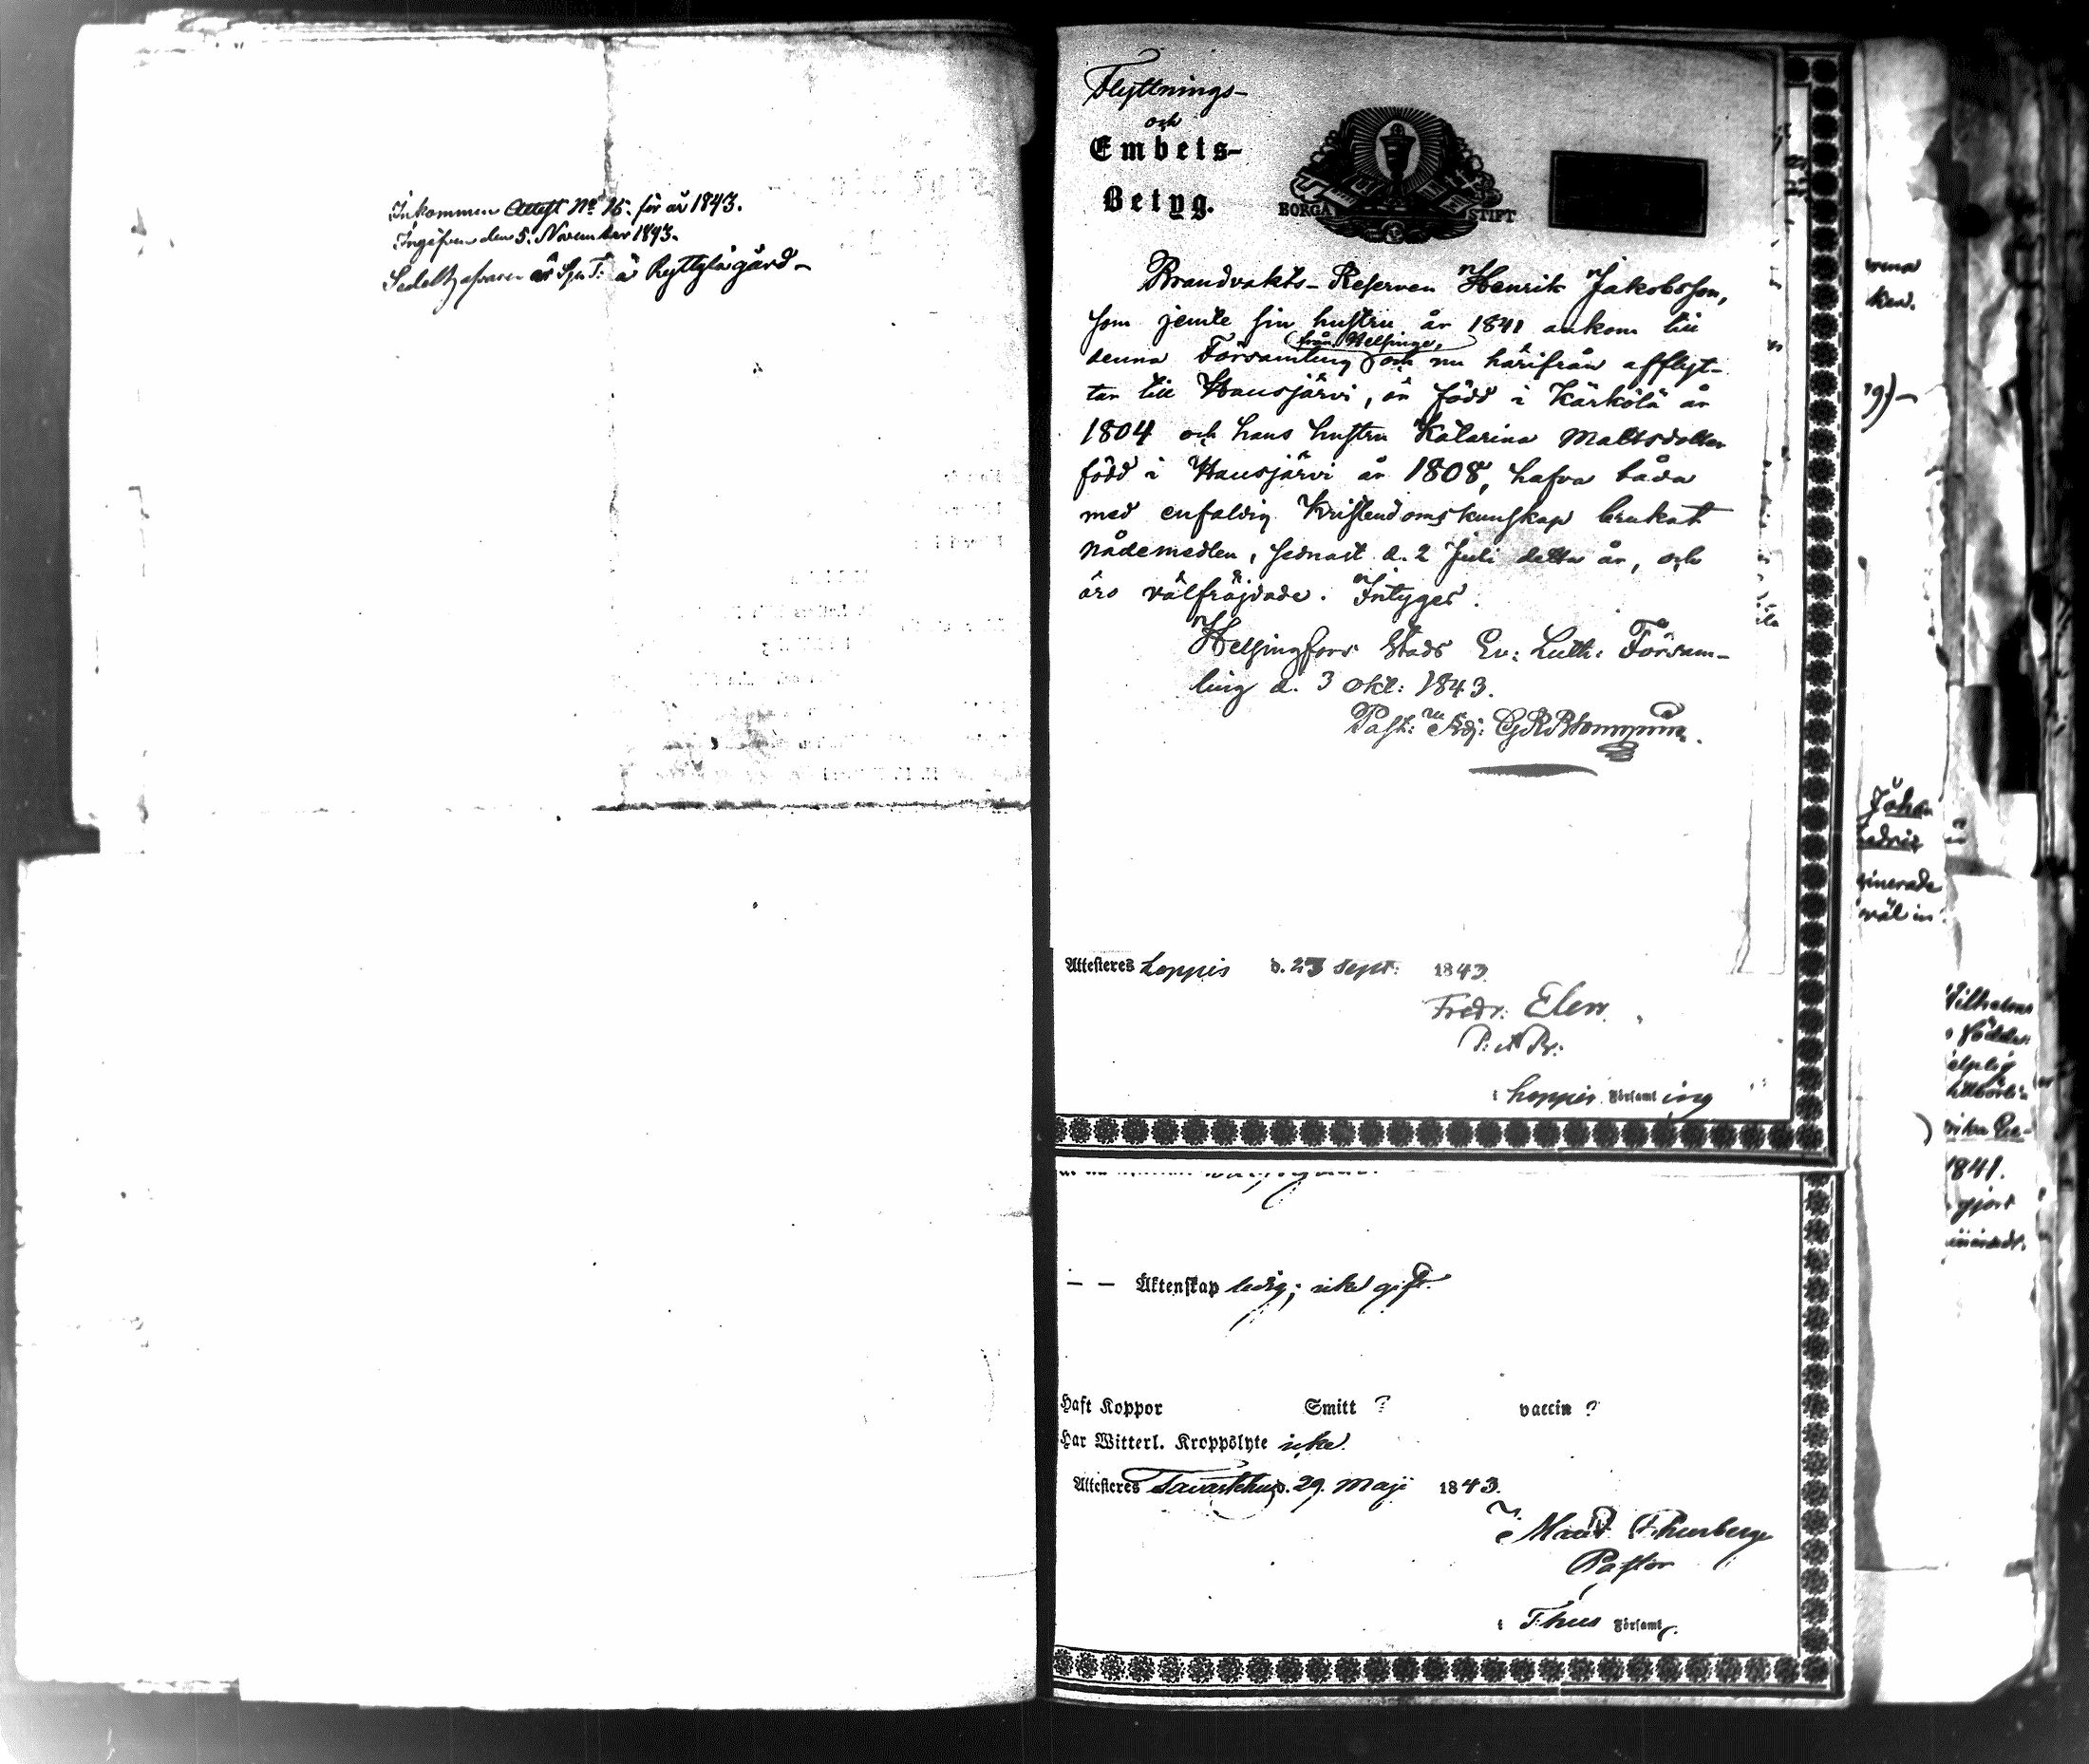 Inkommen Attest No 16. för år 1843.
Ingifven den 5. November 1843.
är å Ryttylä gård –
Flyttnings-
och
Embets-
Betyg.
BORGÅ STIFT
Brandvakts- Reserven Henrik Jakobsson,
som jemte sin hustru år 1841 ankom till
från Helsinge,
denna Församling och nu härifrån afflyt-
tar till Hausjärvi, är född i Kärkölä år
1804 och hans hustru Katarina Mattsdotter
född i Hausjärvi år 1808, hafva båda
med enfaldig Kristendomskunskap brukat
nådemedlen, sednast d. 2 Juli detta år, och
äro välfräjdade. Intyges.
Helsingfors Stads Ev: Luth: Försam-
ling d. 3 Okt: 1843.
Past: Adj:
Attesteres Loppis d. 23 Sept: 1843
Fredr. Elen
P: A Pr:
i Loppis Församling
— — Äktenskap ledig; icke gift.
Haft Koppor Smitt ? vaccin ?
Har Witterl. Kroppslyte icke.
Attesteres Tavastehus d. 29. Maji 1843.
Thunberg
Pastor
i T:hus Församl.
Johan
ginerade
väl in
Wilhelms
1841.
gjort